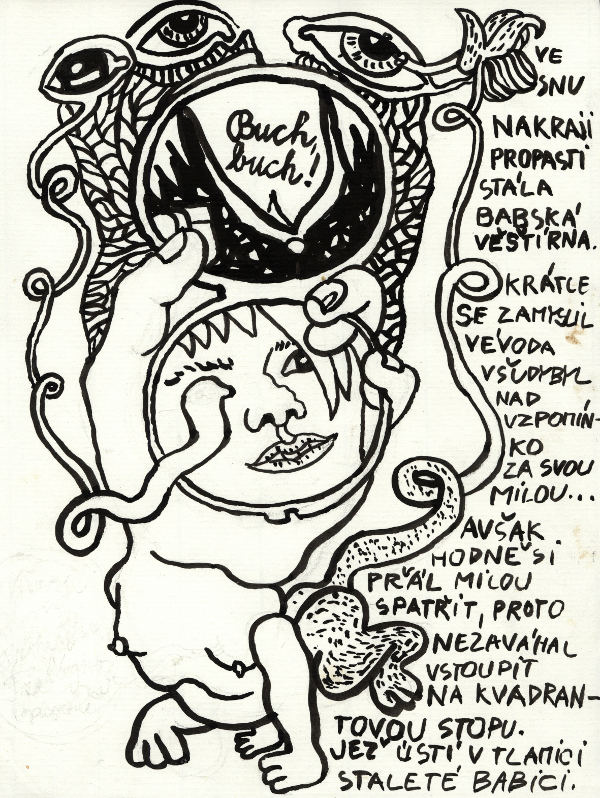 Buch,
buch!
VE
SNU
NAKRAJI
PROPASTI
STÁLA
BABSKÁ
VĚŠTÍRNA.
KRÁTCE
SE ZAMYSLIL
VÉVODA
VŠUDYBYL
NAD
VZPOMÍN-
KO
ZA SVOU
MILOU...
AVŠAK
HODNĚ SI
PŘÁL MILOU
SPATŘIT, PROTO
NEZAVÁHAL
VSTOUPIT
NA KVADRAN-
TOVOU STOPU.
JEŽ ÚSTÍ V TLAMICI
STALETÉ BABICI.